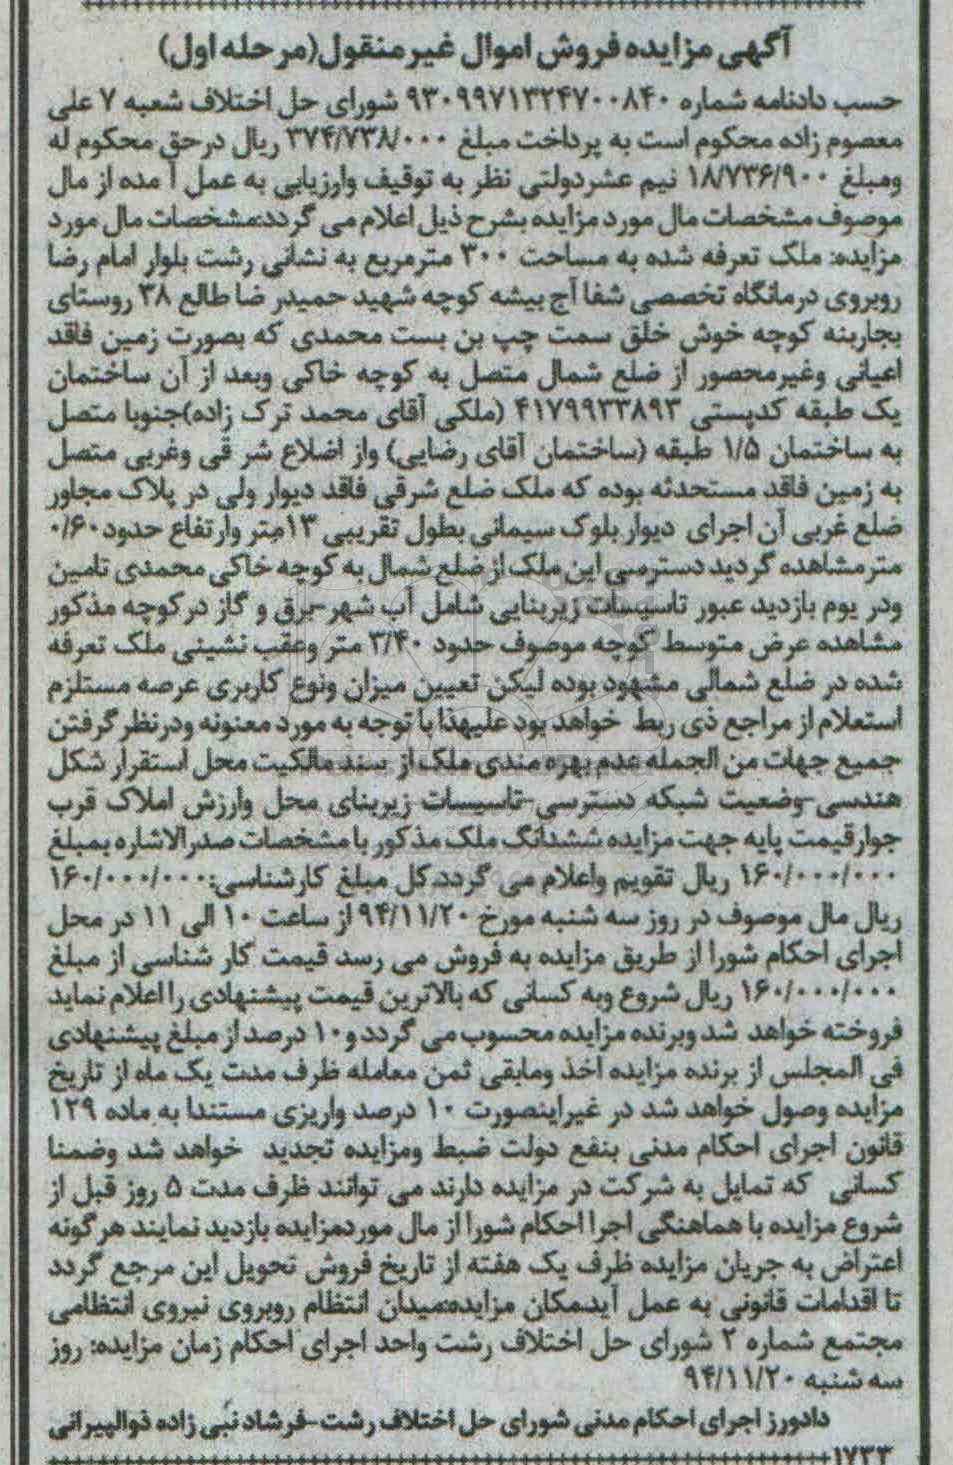 آگهی مزایده فروش اموال غیر منقول(مرحله اول)
حسب دادنامه شماره ۹۳۰۹۹۷۱۳۲۴۷۰۰۸۴۰ شورای حل اختلاف شعبه ۷ علی
معصوم زاده محکوم است به پرداخت مبلغ ۳۷۴/۷۳۸/۰۰۰ ریال درحق محکوم له
ومبلغ ۱۸/۷۳۶/۹۰۰ نیم عشردولتی نظر به توقیف وارزیابی به عمل آ مده از مال
موصوف مشخصات مال مورد مزایده بشرح ذیل اعلام می گردد:مشخصات مال مورد
مزایده: ملک تعرفه شده به مساحت ۳۰۰ مترمربع به نشانی رشت بلوار امام رضا
روبروی درمانگاه تخصصی شفا آج بیشه کوچه شهید حمیدر ضا طالع ۳۸ روستای
بجاربنه کوچه خوش خلق سمت چپ بن بست محمدی که بصورت زمین فاقد
اعیانی وغیرمحصور از ضلع شمال متصل به کوچه خاکی وبعد از آن ساختمان
یک طبقه کدپستی ۴۱۷۹۹۳۳۸۹۳ (ملکی آقای محمد ترک زاده)جنوبا متصل
به ساختمان ۱/۵ طبقه (ساختمان آقای رضایی) واز اضلاع شر قی وغربی متصل
به زمین فاقد مستحدثه بوده که ملک ضلع شرقی فاقد دیوار ولی در پلاک مجاور
ضلع غربی آن اجرای دیوار بلوک سیمانی بطول تقریبی ۱۳متر وارتفاع حدود ۰/۶۰
متر مشاهده گردید دسترسی این ملک از ضلع شمال به کوچه خاکی محمدی تامین
ودر یوم بازدید عبور تاسیسات زیربنایی شامل آب شهر-برق و گاز در کوچه مذکور
مشاهده عرض متوسط کوچه موصوف حدود ۳/۴۰ متر وعقب نشینی ملک تعرفه
شده در ضلع شمالی مشهود بوده لیکن تعیین میزان ونوع کاربری عرصه مستلزم
استعلام از مراجع ذی ربط خواهد بود علیهذا با توجه به مورد معنونه ودرنظر گرفتن
جمیع جهات من الجمله عدم بهره مندی ملک از سند مالکیت محل استقرار شکل
هندسی-وضعیت شبکه دسترسی-تاسیسات زیربنای محل وارزش املاک قرب
جوارقیمت پایه جهت مزایده ششدانگ ملک مذکور با مشخصات صدرالاشاره بمبلغ
۱۶۰/۰۰۰/۰۰۰ ریال تقویم واعلام می گردد.کل مبلغ کارشناسی:۱۶۰/۰۰۰/۰۰۰
ریال مال موصوف در روز سه شنبه مورخ ۹۴/۱۱/۲۰ از ساعت ۱۰ الی ۱۱ در محل
اجرای احکام شورا از طریق مزایده به فروش می رسد قیمت کار شناسی از مبلغ
۱۶۰/۰۰۰/۰۰۰ ریال شروع وبه کسانی که بالاترین قیمت پیشنهادی را اعلام نماید
فروخته خواهد شد وبرنده مزایده محسوب می گردد و۱۰ درصد از مبلغ پیشنهادی
فی المجلس از برنده مزایده اخذ ومابقی ثمن معامله ظرف مدت یک ماه از تاریخ
مزایده وصول خواهد شد در غیراینصورت ۱۰ درصد واریزی مستندا به ماده ۱۲۹
قانون اجرای احکام مدنی بنفع دولت ضبط ومزایده تجدید خواهد شد وضمنا
کسانی که تمایل به شرکت در مزایده دارند می توانند ظرف مدت ۵ روز قبل از
شروع مزایده با هماهنگی اجرا احکام شورا از مال موردمزایده بازدید نمایند هرگونه
اعتراض به جریان مزایده ظرف یک هفته از تاریخ فروش تحویل این مرجع گردد
تا اقدامات قانونی به عمل آید.مکان مزایده:میدان انتظام روبروی نیروی انتظامی
مجتمع شماره ۲ شورای حل اختلاف رشت واحد اجرای احکام زمان مزایده: روز
سه شنبه ۹۴/۱۱/۲۰
دادورز اجرای احکام مدنی شورای حل اختلاف رشت-فرشاد نبی زاده ذوالپیرانی
۱۷۳۳